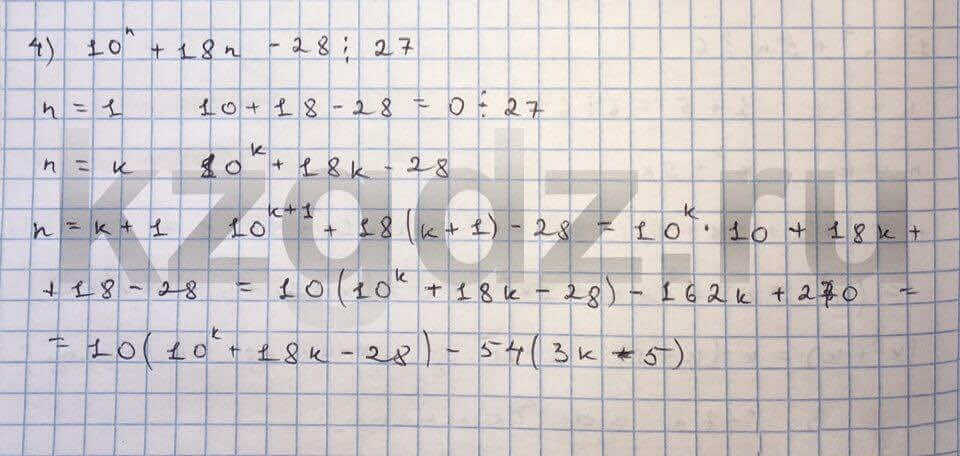 4) 10ⁿ + 18n - 28 ⋮ 27
n = 1 10 + 18 - 28 = 0 ⋮ 27
n = k 10ᵏ + 18k - 28
n = k + 1 10ᵏ⁺¹ + 18(k + 1) - 28 = 10ᵏ · 10 + 18k +
+ 18 - 28 = 10(10ᵏ + 18k - 28) - 162k + 270 =
= 10(10ᵏ + 18k - 28) - 54(3k - 5)
kzgdz.ru